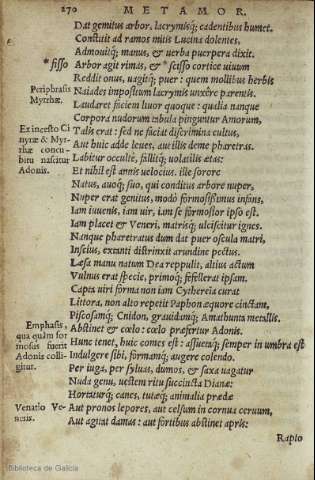 270 METAMOR.
Dat gemitus arbor, lacrymisq; cadentibus humet.
Constitit ad ramos mitis Lucina dolentes,
Admouitq; manus, & uerba puerpera dixit.
* fisso Arbor agit rimas, & * scisso cortice uiuum
Reddit onus, uagitq; puer: quem mollibus herbis
Periphrasis Naiades impositum lacrymis unxêre parentis.
Myrrhæ. Laudaret faciem liuor quoque: qualia nanque
Corpora nudorum tabula pinguntur Amorum,
Ex incesto Ci Talis erat: sed ne faciat discrimina cultus,
nyræ & Myr Aut huic adde leues, aut illis deme pharetras.
rhæ concu- Labitur occultè, fallitq; uolatilis ætas:
bitu nascitur Et nihil est annis uelocius. ille sorore
Adonis. Natus, auoq; suo, qui conditus arbore nuper,
Nuper erat genitus, modò formosissimus infans,
Iam iuuenis, iam uir, iam se formosior ipso est.
Iam placet & Veneri, matrisq; ulciscitur ignes.
Nanque pharetratus dum dat puer oscula matri,
Inscius, extanti distrinxit arundine pectus.
Læsa manu natum Dea reppulit, altius actum
Vulnus erat specie, primoq; fefellerat ipsam.
Capta uiri forma non iam Cythereia curat
Littora, non alto repetit Paphon æquore cinctam,
Piscosamq; Cnidon, grauidamq; Amathunta metallis.
Emphasis, Abstinet & cœlo: cœlo præfertur Adonis.
qua quàm for Hunc tenet, huic comes est: assuetaq; semper in umbra est
mosus fuerit Indulgere sibi, formamq; augere colendo.
Adonis colli- Per iuga, per syluas, dumos, & saxa uagatur
gitur. Nuda genu, uestem ritu succincta Dianæ:
Hortaturq; canes, tutæq; animalia prædæ
Venatio Ve- Aut pronos lepores, aut celsum in cornua ceruum,
neris. Aut agitat damas: aut fortibus abstinet apris:
Rapto
Biblioteca de Galicia